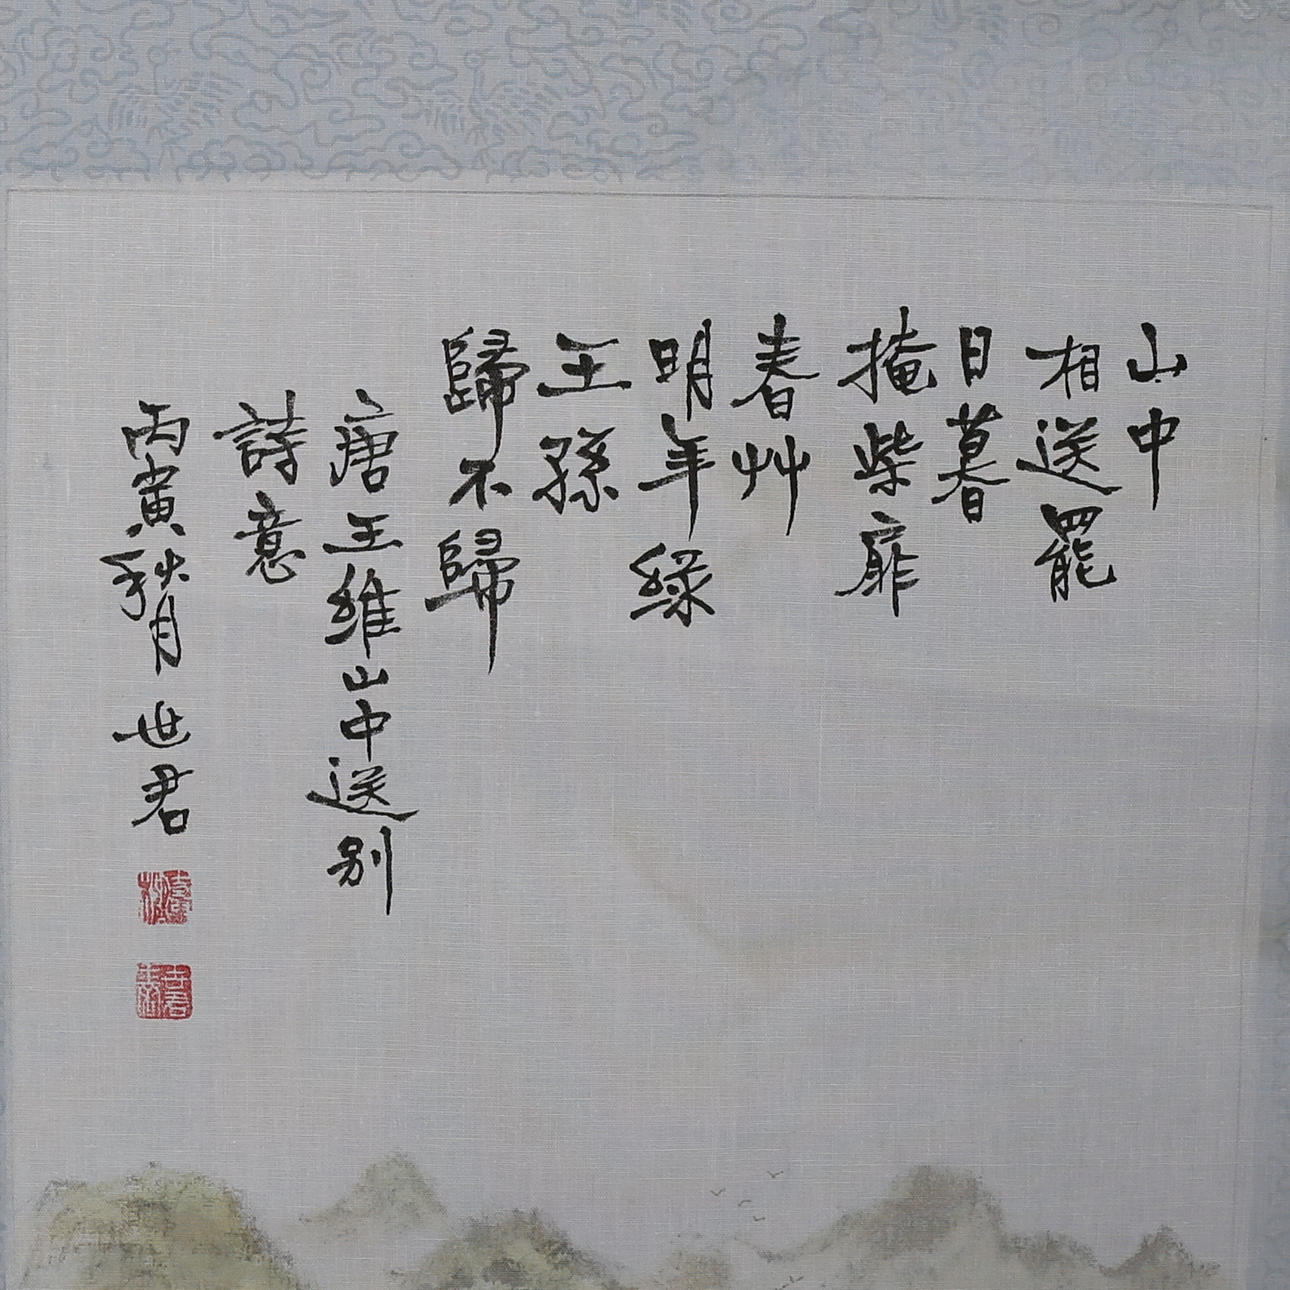 山中
相送罷
日暮
掩柴扉
春艸
明年綠
王孫
歸不歸
唐王維山中送別
詩意
丙寅秋月 世君